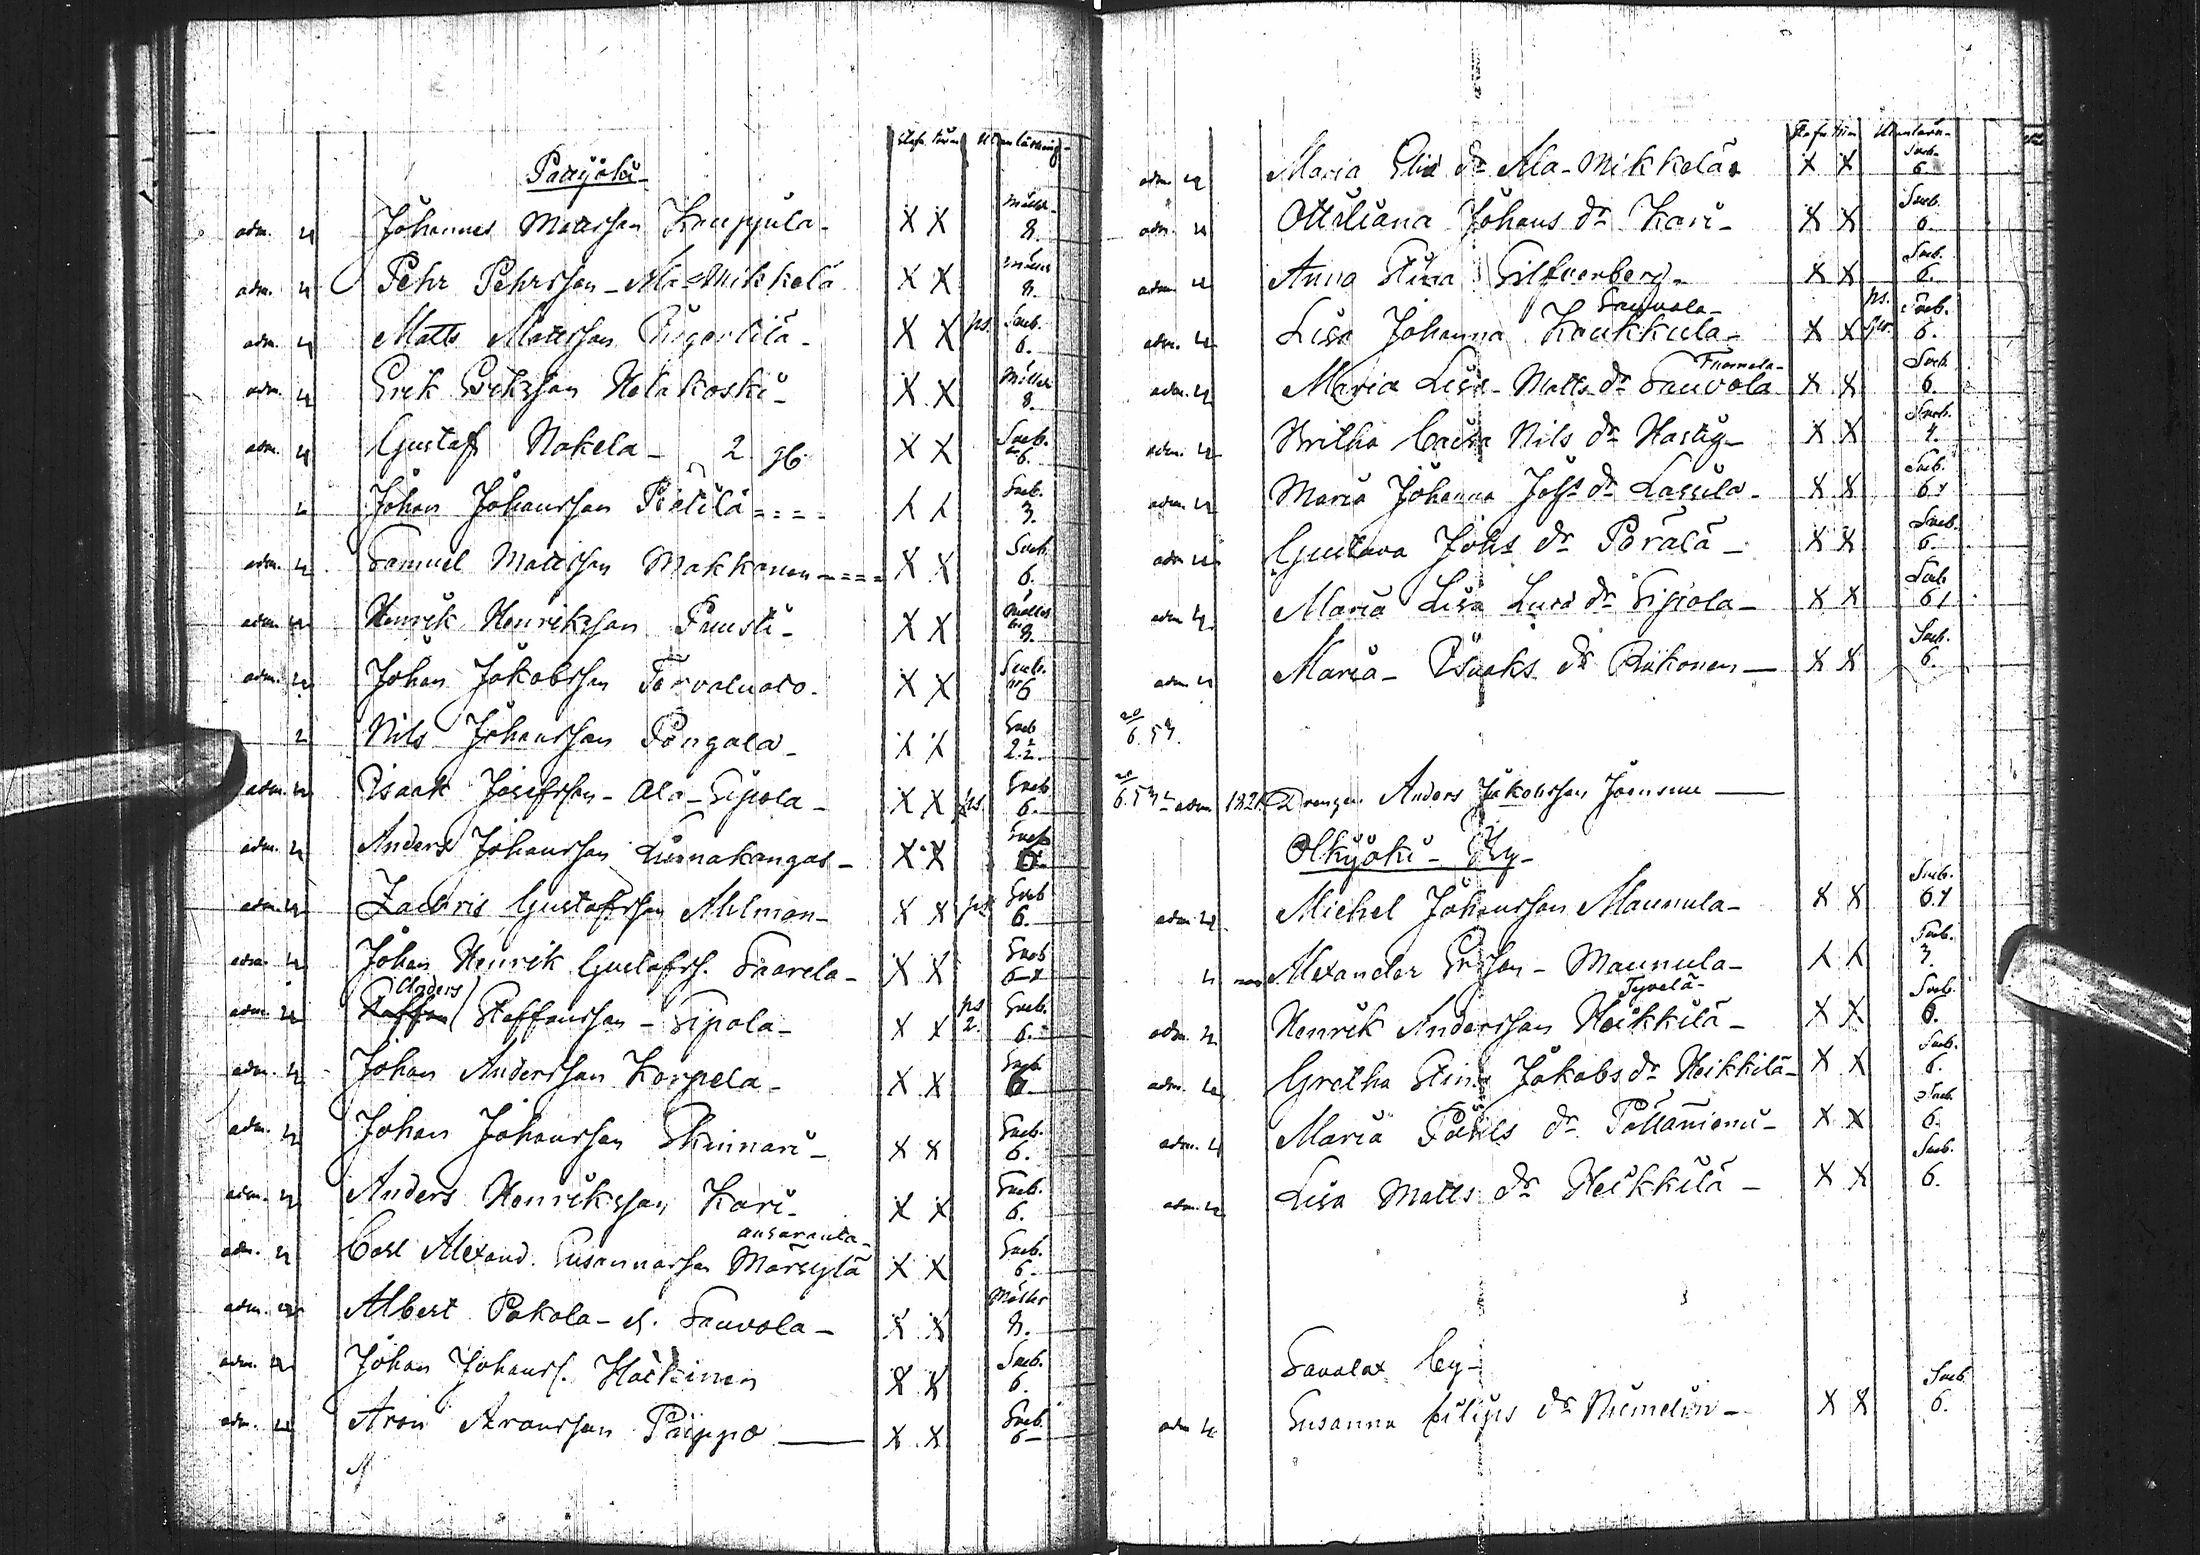 Stafn. Inn. Utanläsning
Pattijoki
adm. 4 Johannes Mattsson Kauppila - X X Möller 8.
adm. 4 Pehr Pehrsson - Ala-Mikkelä X X Möller 8.
adm. 4 Matts Mattsson - X X ps. Sveb. 6.
adm. 4 Erik Eriksson Holakoski - X X Möller 8.
adm. 4 Gustaf Nokela - 2 gb X X Sveb. 6.
Johan Johansson Pietilä X X Sveb. 3.
adm. 4 Samuel Mattsson Makkonen X X Sveb. 6.
adm. 4 Henrik Henriksson Puusti - X X Möller 8.
adm. 4 Johan Jakobsson Torvaluoto - X X Sveb. 6
2 Nils Johansson Pongala - X X Sveb 2.2
adm. 4 Isaak Josefsson - Ala-Sipola - X X ps. Sveb 6.
adm. 4 Anders Johansson Linnakangas - X X Sveb 6
adm. 4 Zachris Gustafsson Ahlman - X X ps. Sveb 6.
adm. 4 Johan Henrik Gustafss. Saarela - X X Sveb
Anders
adm. 4 Staffan Staffansson - Sipola - X X ps 2. Sveb. 6.
adm. 4 Johan Andersson Korpela - X X Sveb. 6.
adm. 4 Johan Johansson Skinnari - X X Sveb. 6.
adm. 4 Anders Henriksson Kari - X X Sveb. 6.
adm. 4 Carl Alexand. Susannasson Märsylä X X Sveb. 6.
adm. 4 Albert Pokola - Sauvola - X X Möller 8.
adm. 4 Johan Johanss. Häikinen X X Sveb. 6.
adm. 4 Aron Aronsson Piippo X X Sveb. 6
Stafn. Inn. Utanläsn.
adm. 4 Maria Elia dr Ala-Mikkelä X X Sveb. 6
adm. 4 Ottiliana Johans dr Kari - X X Sveb. 6.
adm. 4 Anna Stina Silfverberg - X X Sveb. 6.
Sauvola -
adm. 4 Lisa Johanna Koukkula - X X ps. Sveb. 6.
Tuomela -
adm. 4 Maria Lisa - Matts dr Sauvola X X Sveb. 6.
adm. 4 Britha Caisa Nils dr Hastig - X X Sveb. 4.
adm. 4 Maria Johanna Johs dr Lassila - X X Sveb. 6
adm. 4 Gustava Johs dr Pörälä - X X Sveb. 6.
adm. 4 Maria Lisa Lisa dr Sipola - X X Sveb 6
adm. 4 Maria - Isaaks dr Riikonen - X X Sveb. 6.
20/6. 54.
20/6. 54 adm 1821 Drengen Anders Jakobsson Joensuu
Olkijoki - By -
adm. 4 Michel Johansson Maunula - X X Sveb. 6.
4 Alexander Ersson - Maunula - X X Sveb. 3.
Tyvelä -
adm. 4 Henrik Andersson Heikkilä - X X Sveb. 6.
adm. 4 Gretha Stina Jakobs dr Heikkilä - X X Sveb. 6.
adm. 4 Maria Påhls dr Pölläniemi - X X Sveb. 6.
adm. 4 Lisa Matts dr Heikkilä - X X Sveb. 6.
Savolax by -
adm 4 Susanna Filips dr Niemelin - X X Sveb. 6.